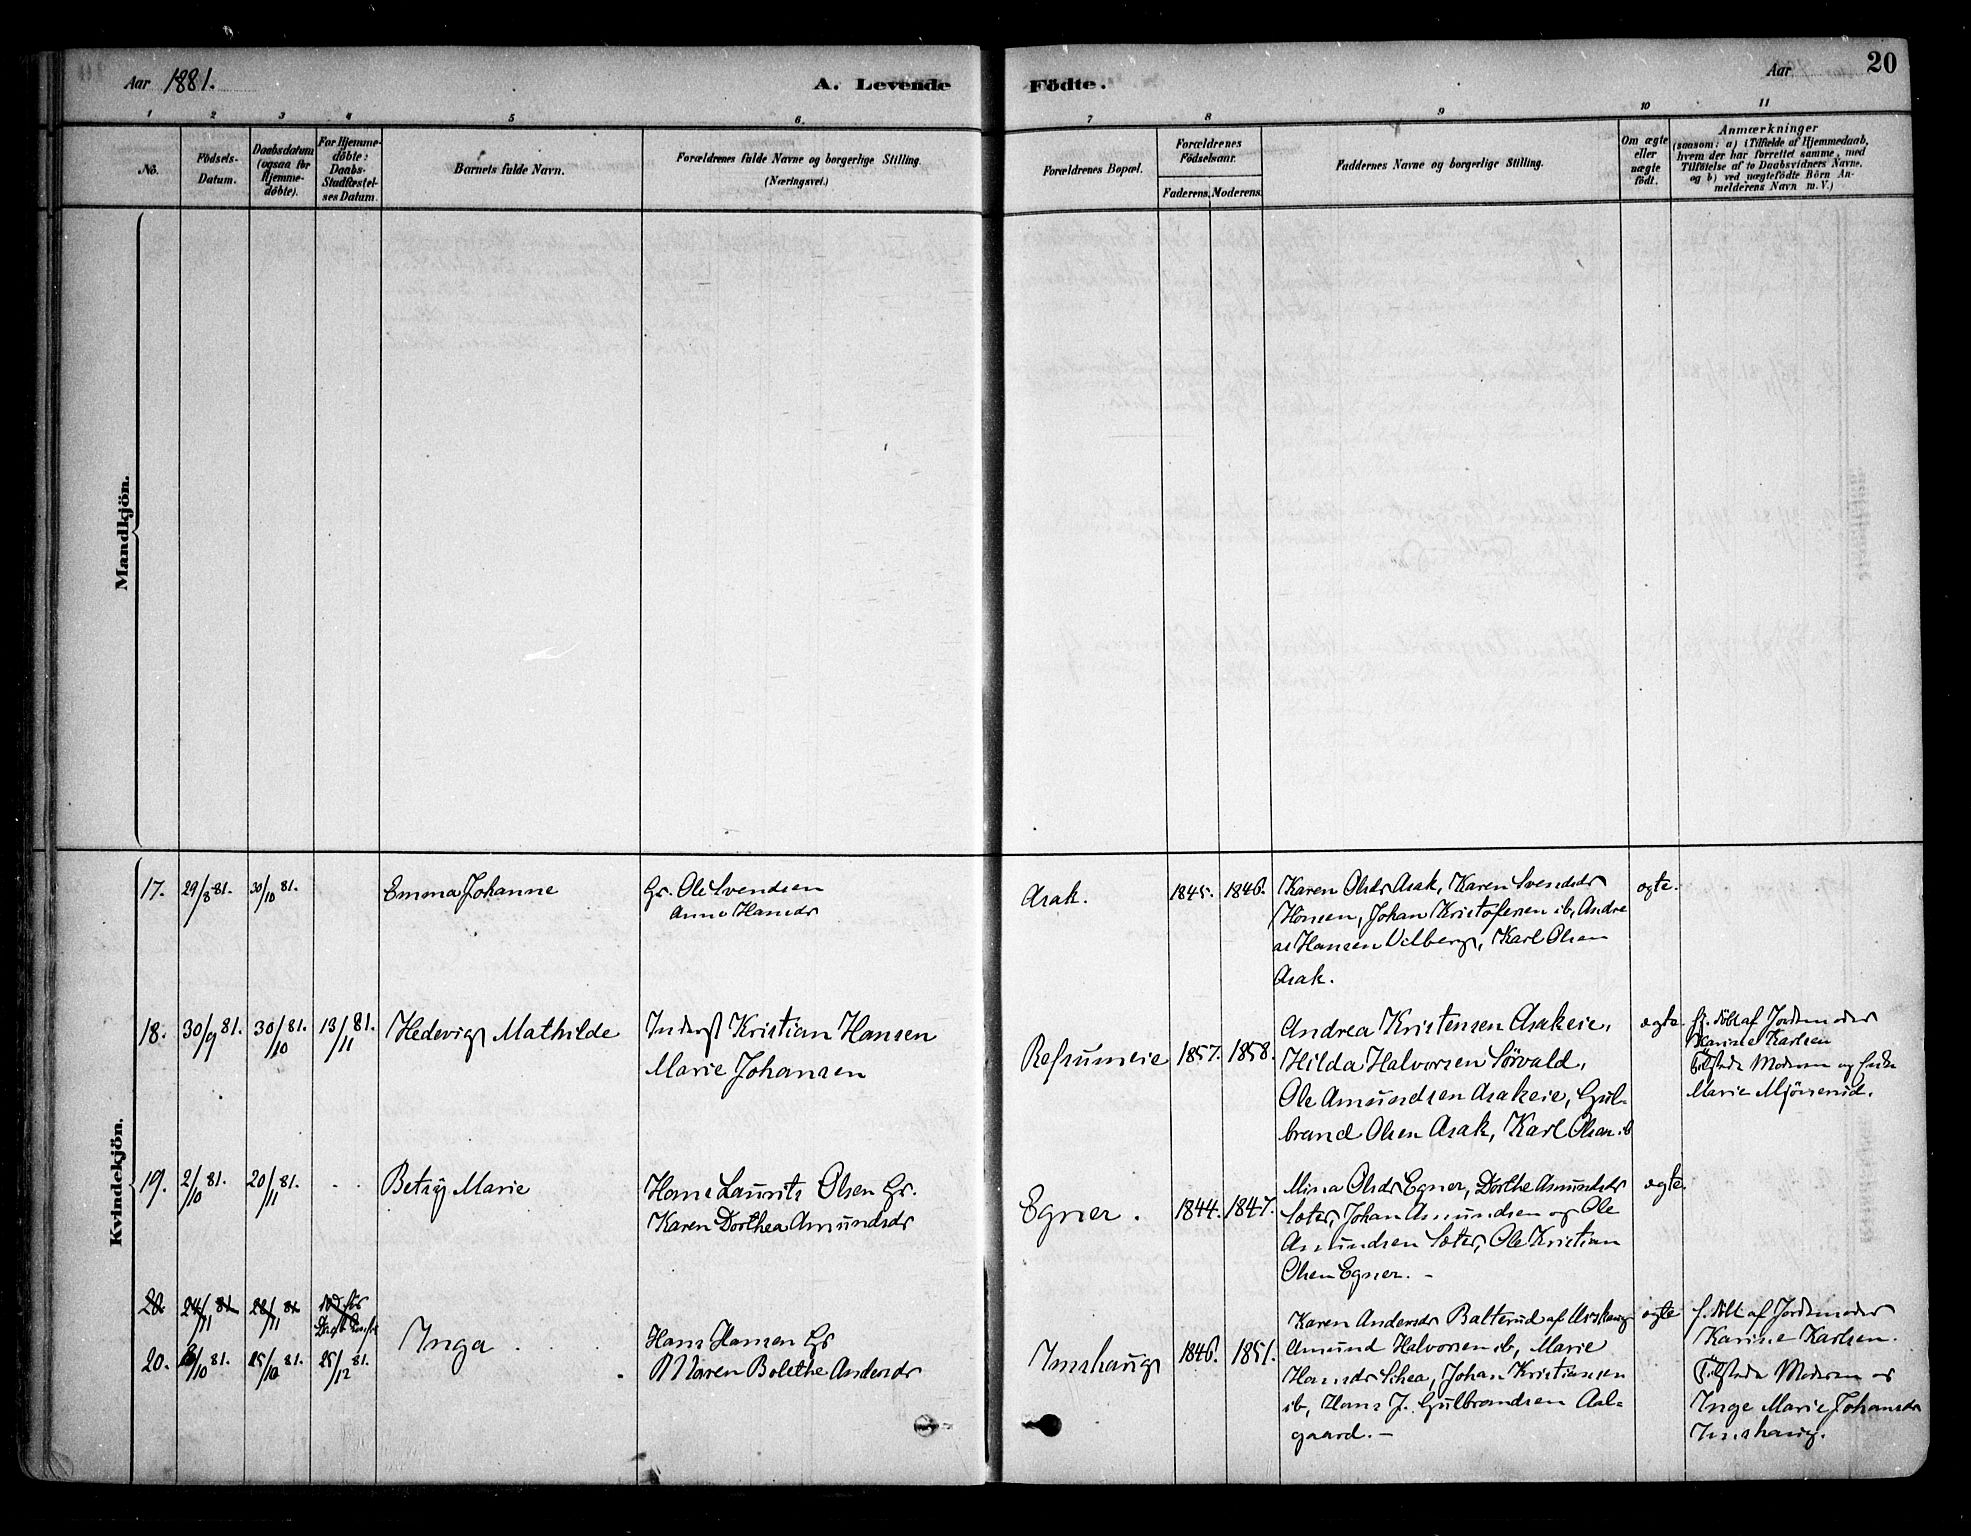 Aar 1881.
A. Levende
Födte.
Aar
20
1
2
3
4
5
6.
7
8
9
10
11
No.
Födsels-
Datum.
Daabsdatum
(ogsaa for
Hjemme-
döbte).
For Hjemme-
döbte:
Daabs-
Stadfæstel-
ses Datum.
Barnets fulde Navn.
Forældrenes fulde Navne og borgerlige Stilling.
(Næringsvei.)
Forældrenes Bopæl.
Forældrenes
Födselsaar.
Faderens.
Moderens.
Faddernes Navne og borgerlige Stilling.
Om ægte
eller
uægte
födt.
Anmærkninger
(saasom: a) i Tilfælde af Hjemmedaab,
hvem der har forrettet samme, med
Tilföielse af to Daabsvidners Navne,
og b) ved uægtefödte Börn An-
melderens Navn m. V.)
Mandkjön.
Kvindekjön.
17. 29/8 81. 30/10 81.
Emma Johanne
Gr. Ole Svendsen
Anne Hansdr
Asak.
1845. 1846.
Karen Olsdr Asak, Karen Svendsdr
Hönsen, Johan Kristofersen ib, Andre
as Hansen Vilberg, Karl Olsen
Asak.
ægte.
18. 30/9 81. 30/10 81. 13/11 81.
Hedevig Mathilde
Inderst Kristian Hansen
Marie Johansen
Refsumeie
1857. 1858.
Andrea Kristensen Asakeie,
Hilda Halvorsen Sörvald,
Ole Amundsen Asakeie, Gul-
brand Olsen Asak, Karl Olsen ib
ægte.
hj. döbt af Jordemoder
Karine Karlsen
Tilstede Moderen og
Marie Mjönerud.
19. 2/10 81. 20/11 81. - -
Betsy Marie
Hans Laurits Olsen Gr.
Karen Dorthea Amundsdr
Egner.
1844. 1847.
Mina Olsdr Egner, Dorthe Amundsdr
Sæter, Johan Amundsen og Ole
Amundsen Sæter, Ole Kristian
Olsen Egner. -
ægte.
20. 24/11 81 28/11 81
20. 3/10 81. 15/10 81. 25/12 81.
Inga
Hans Hansen Gr
Maren Bolethe Andersdr
Imshaug
1846. 1851.
Karen Andersdr Balterud af Urskoug
Amund Halvorsen ib, Marie
Hansdr Schea, Johan Kristiansen
ib, Hans J. Gulbrandsen Aal-
gaard. -
ægte
h. döbt af Jordemoder
Karine Karlsen.
Tilstede Moderen og
Inge Marie Johansdr
Imshaug.